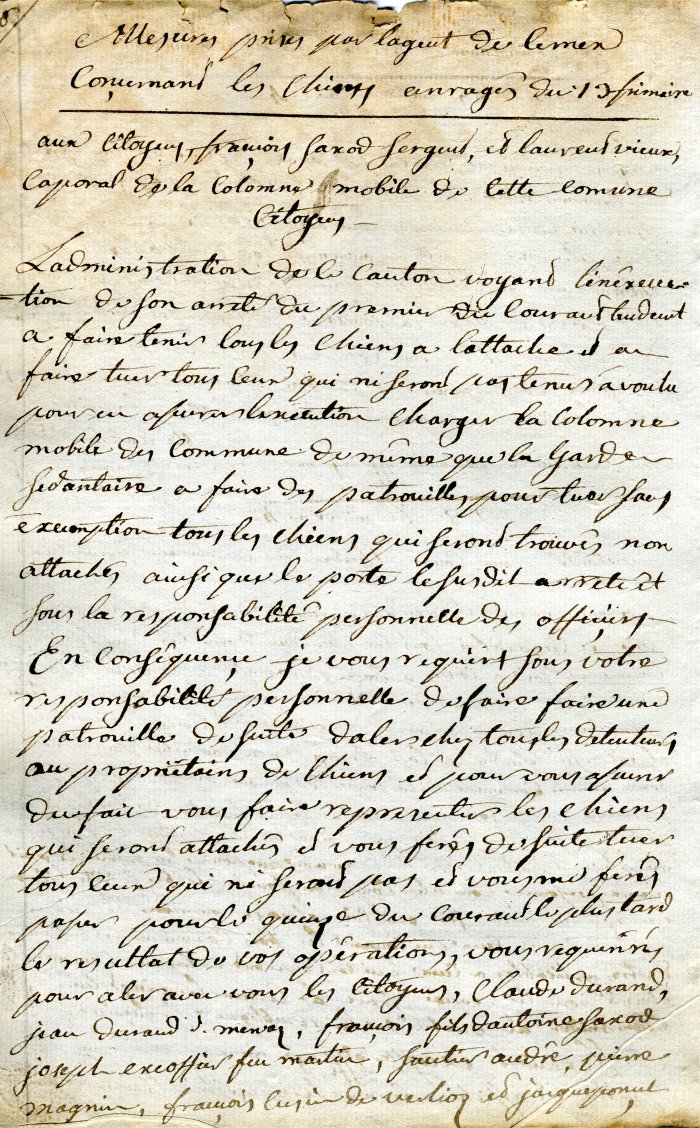 Mesures prises par lagent de lemen
Concernand les Chiens enragés du 13 frimaire
aux Citoyens, françois saxod sergend, et laurend vieux,
Caporal de la Colomne mobile de Cette Comune
Citoyens
Ladministration de le Canton voyand linéxecu-
tion de son arrété du premier du Courand tendent
a faire tenir tous les Chiens a lattache et a
faire tuer tous ceux qui ni serond pas tenus a voulu
pour en assurer lexecution Charger la Colomne
mobile des Commune de même que la Garde
sedantaire a faire des patrouilles pour tuer sans
exemption tous les Chiens qui serond trouvés non
attachés ainsi que le porte le susdit arreté et
sous la responsabilité personnelle des officiers
En Conséquence je vous requiert sous votre
responsabilité personnelle de faire faire une
patrouille de suite daler chez tous les detenteurs
ou propriétairs de Chiens et pour vous assurer
du fait vous faire representer les Chiens
qui serond attachés et vous ferés de suite tuer
tous ceux qui ni serond pas et vous me ferés
passer pour le quinze du Courand le plus tard
le resultat de vos opérations, vous requérrés
pour aler avec vous les Citoyens, Claude durand,
jean durand, françois fils dantoine saxod
joseph excoffier feu martin, sautier andré, pierre
magnin, françois de et jacque